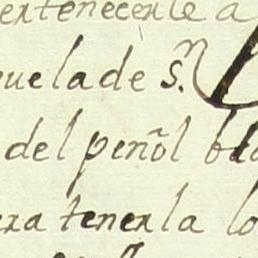 ertenecerle a
uelade S.ⁿ
del peñol bla
era tenerla lo